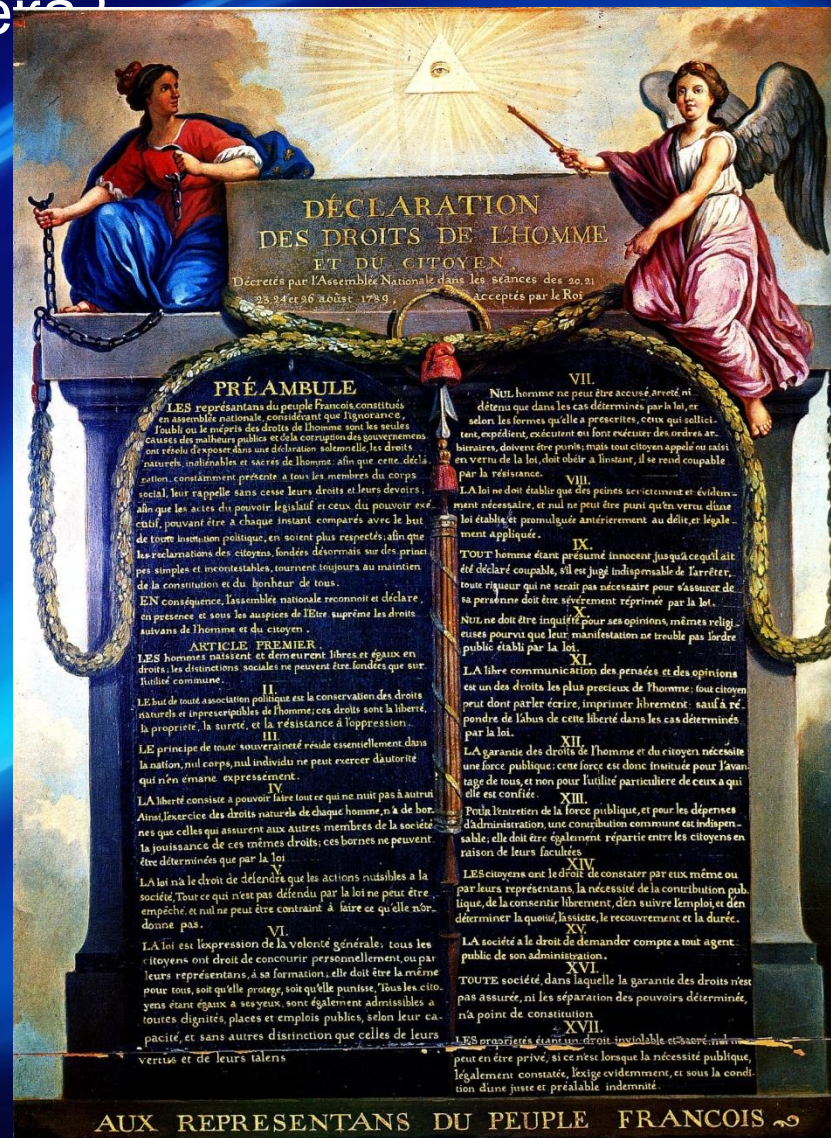 DÉCLARATION
DES DROITS DE L'HOMME
ET DU CITOYEN,
Décretés par l'Assemblée Nationale dans les séances des 20, 21
23, 24 et 26 aoûst 1789, acceptés par le Roi
PRÉAMBULE
LES représantans du peuple François, constitués
en assemblée nationale, considérant que l'ignorance,
l'oubli ou le mépris des droits de l'homme sont les seules
causes des malheurs publics et de la corruption des gouvernemens
ont résolu d'exposer dans une déclaration solemnelle, les droits
naturels, inaliénables et sacrés de l'homme; afin que cette décla
ration, constamment présente a tous les membres du corps
social, leur rappelle sans cesse leurs droits et leurs devoirs;
afin que les actes du pouvoir legislatif et ceux du pouvoir exé
cutif, pouvant être a chaque instant comparés avec le but
de toute institution politique, en soient plus respectés; afin que
les reclamations des citoyens, fondées désormais sur des princi
pes simples et incontestables, tournent toujours au maintien
de la constitution et du bonheur de tous.
EN conséquence, l'assemblée nationale reconnoit et déclare,
en presence et sous les auspices de l'Etre suprême les droits
suivans de l'homme et du citoyen.
ARTICLE PREMIER.
LES hommes naissent et demeurent libres et égaux en
droits; les distinctions sociales ne peuvent être fondées que sur
l'utilité commune.
II.
LE but de toute association politique est la conservation des droits
naturels et inprescriptibles de l'homme; ces droits sont la liberté,
la propriété, la sureté, et la résistance à l'oppression.
III.
LE principe de toute souveraineté réside essentiellement dans
la nation, nul corps, nul individu ne peut exercer d'autorité
qui n'en émane expressément.
IV.
LA liberté consiste a pouvoir faire tout ce qui ne nuit pas à autrui
Ainsi, l'exercice des droits naturels de chaque homme, n'a de bor-
nes que celles qui assurent aux autres membres de la société
la jouissance de ces mêmes droits; ces bornes ne peuvent
être déterminées que par la loi
V.
LA loi n'a le droit de défendre que les actions nuisibles a la
société. Tout ce qui n'est pas défendu par la loi ne peut être
empêché, et nul ne peut être contraint à faire ce qu'elle n'or-
donne pas.
VI.
LA loi est l'expression de la volonté générale; tous les
citoyens ont droit de concourir personnellement, ou par
leurs représentans, à sa formation; elle doit être la même
pour tous, soit qu'elle protege, soit qu'elle punisse, Tous les cito-
yens étant égaux a ses yeux, sont également admissibles a
toutes dignités, places et emplois publics, selon leur ca-
pacité, et sans autres distinction que celles de leurs
vertus et de leurs talens
VII.
NUL homme ne peut être accusé, arreté, ni
détenu que dans les cas déterminés par la loi, et
selon les formes qu'elle a prescrites, ceux qui sollici-
tent, expédient, exécutent ou font exécuter des ordres ar-
bitraires, doivent être punis; mais tout citoyen appelé ou saisi
en vertu de la loi, doit obéir a l'instant, il se rend coupable
par la résistance.
VIII.
LA loi ne doit établir que des peines strictement et évidem-
ment nécessaire, et nul ne peut être puni qu'en vertu d'une
loi établie et promulguée antérierement au délit, et légale-
ment appliquée.
IX.
TOUT homme étant présumé innocent jusqu'a ce qu'il ait
été déclaré coupable, s'il est jugé indispensable de l'arrêter,
toute rigueur qui ne serait pas nécessaire pour s'assurer de
sa personne doit être sévérement réprimée par la loi.
X.
NUL ne doit être inquiété pour ses opinions, mêmes religi-
euses pourvu que leur manifestation ne trouble pas l'ordre
public établi par la loi.
XI.
LA libre communication des pensées et des opinions
est un des droits les plus precieux de l'homme; tout citoyen
peut donc parler écrire, imprimer librement; sauf à ré-
pondre de l'abus de cette liberté dans les cas déterminés
par la loi.
XII.
LA garantie des droits de l'homme et du citoyen nécessite
une force publique; cette force est donc instituée pour l'avan-
tage de tous, et non pour l'utilité particuliere de ceux a qui
elle est confiée.
XIII.
POUR l'entretien de la force publique, et pour les dépenses
d'administration, une contribution commune est indispen-
sable; elle doit être également répartie entre les citoyens en
raison de leurs facultées
XIV.
LES citoyens ont le droit de constater par eux même ou
par leurs représentans, la nécessité de la contribution pub-
lique, de la consentir librement, d'en suivre l'emploi, et d'en
déterminer la quotité, l'assiette, le recouvrement et la durée.
XV.
LA société a le droit de demander compte a tout agent
public de son administration.
XVI.
TOUTE société, dans laquelle la garantie des droits n'est
pas assurée, ni les séparation des pouvoirs déterminée,
n'a point de constitution
XVII.
LES proprietés étant un droit inviolable et sacré, nul ne
peut en être privé, si ce n'est lorsque la nécessité publique,
légalement constatée, l'exige evidemment, et sous la condi-
tion d'une juste et préalable indemnité.
AUX REPRESENTANS DU PEUPLE FRANCOIS